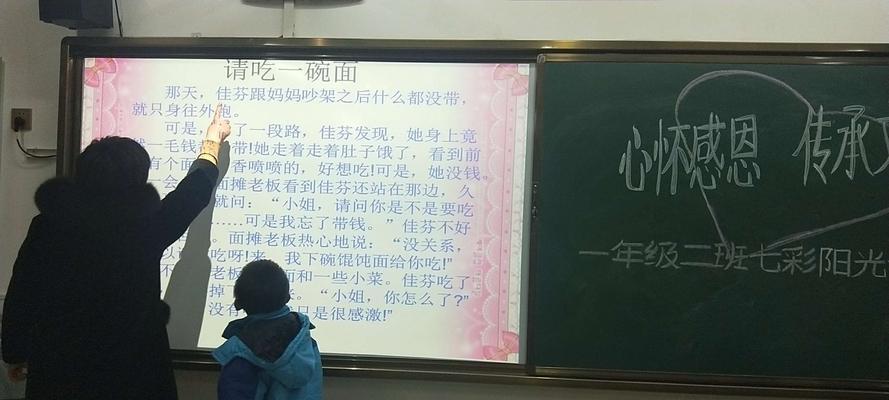 请吃一碗面
那天，佳芬跟妈妈吵架之后什么都没带，
就只身往外跑。
可是，了一段路，佳芬发现，她身上竟
一毛钱带!她走着走着肚子饿了，看到前
有个面香喷喷的，好想吃!可是，她没钱。
一会面摊老板看到佳芬还站在那边，久
就问：“小姐，请问你是不是要吃
……可是我忘了带钱。”佳芬不好
。面摊老板热心地说：“没关系，
以吃呀!来，我下碗馄饨面给你吃!”
不老板面和一些小菜。佳芬吃了
掉了。“小姐，你怎么了?”
没有只是很感激!”
心怀感恩 传承
一年级二班七彩阳光